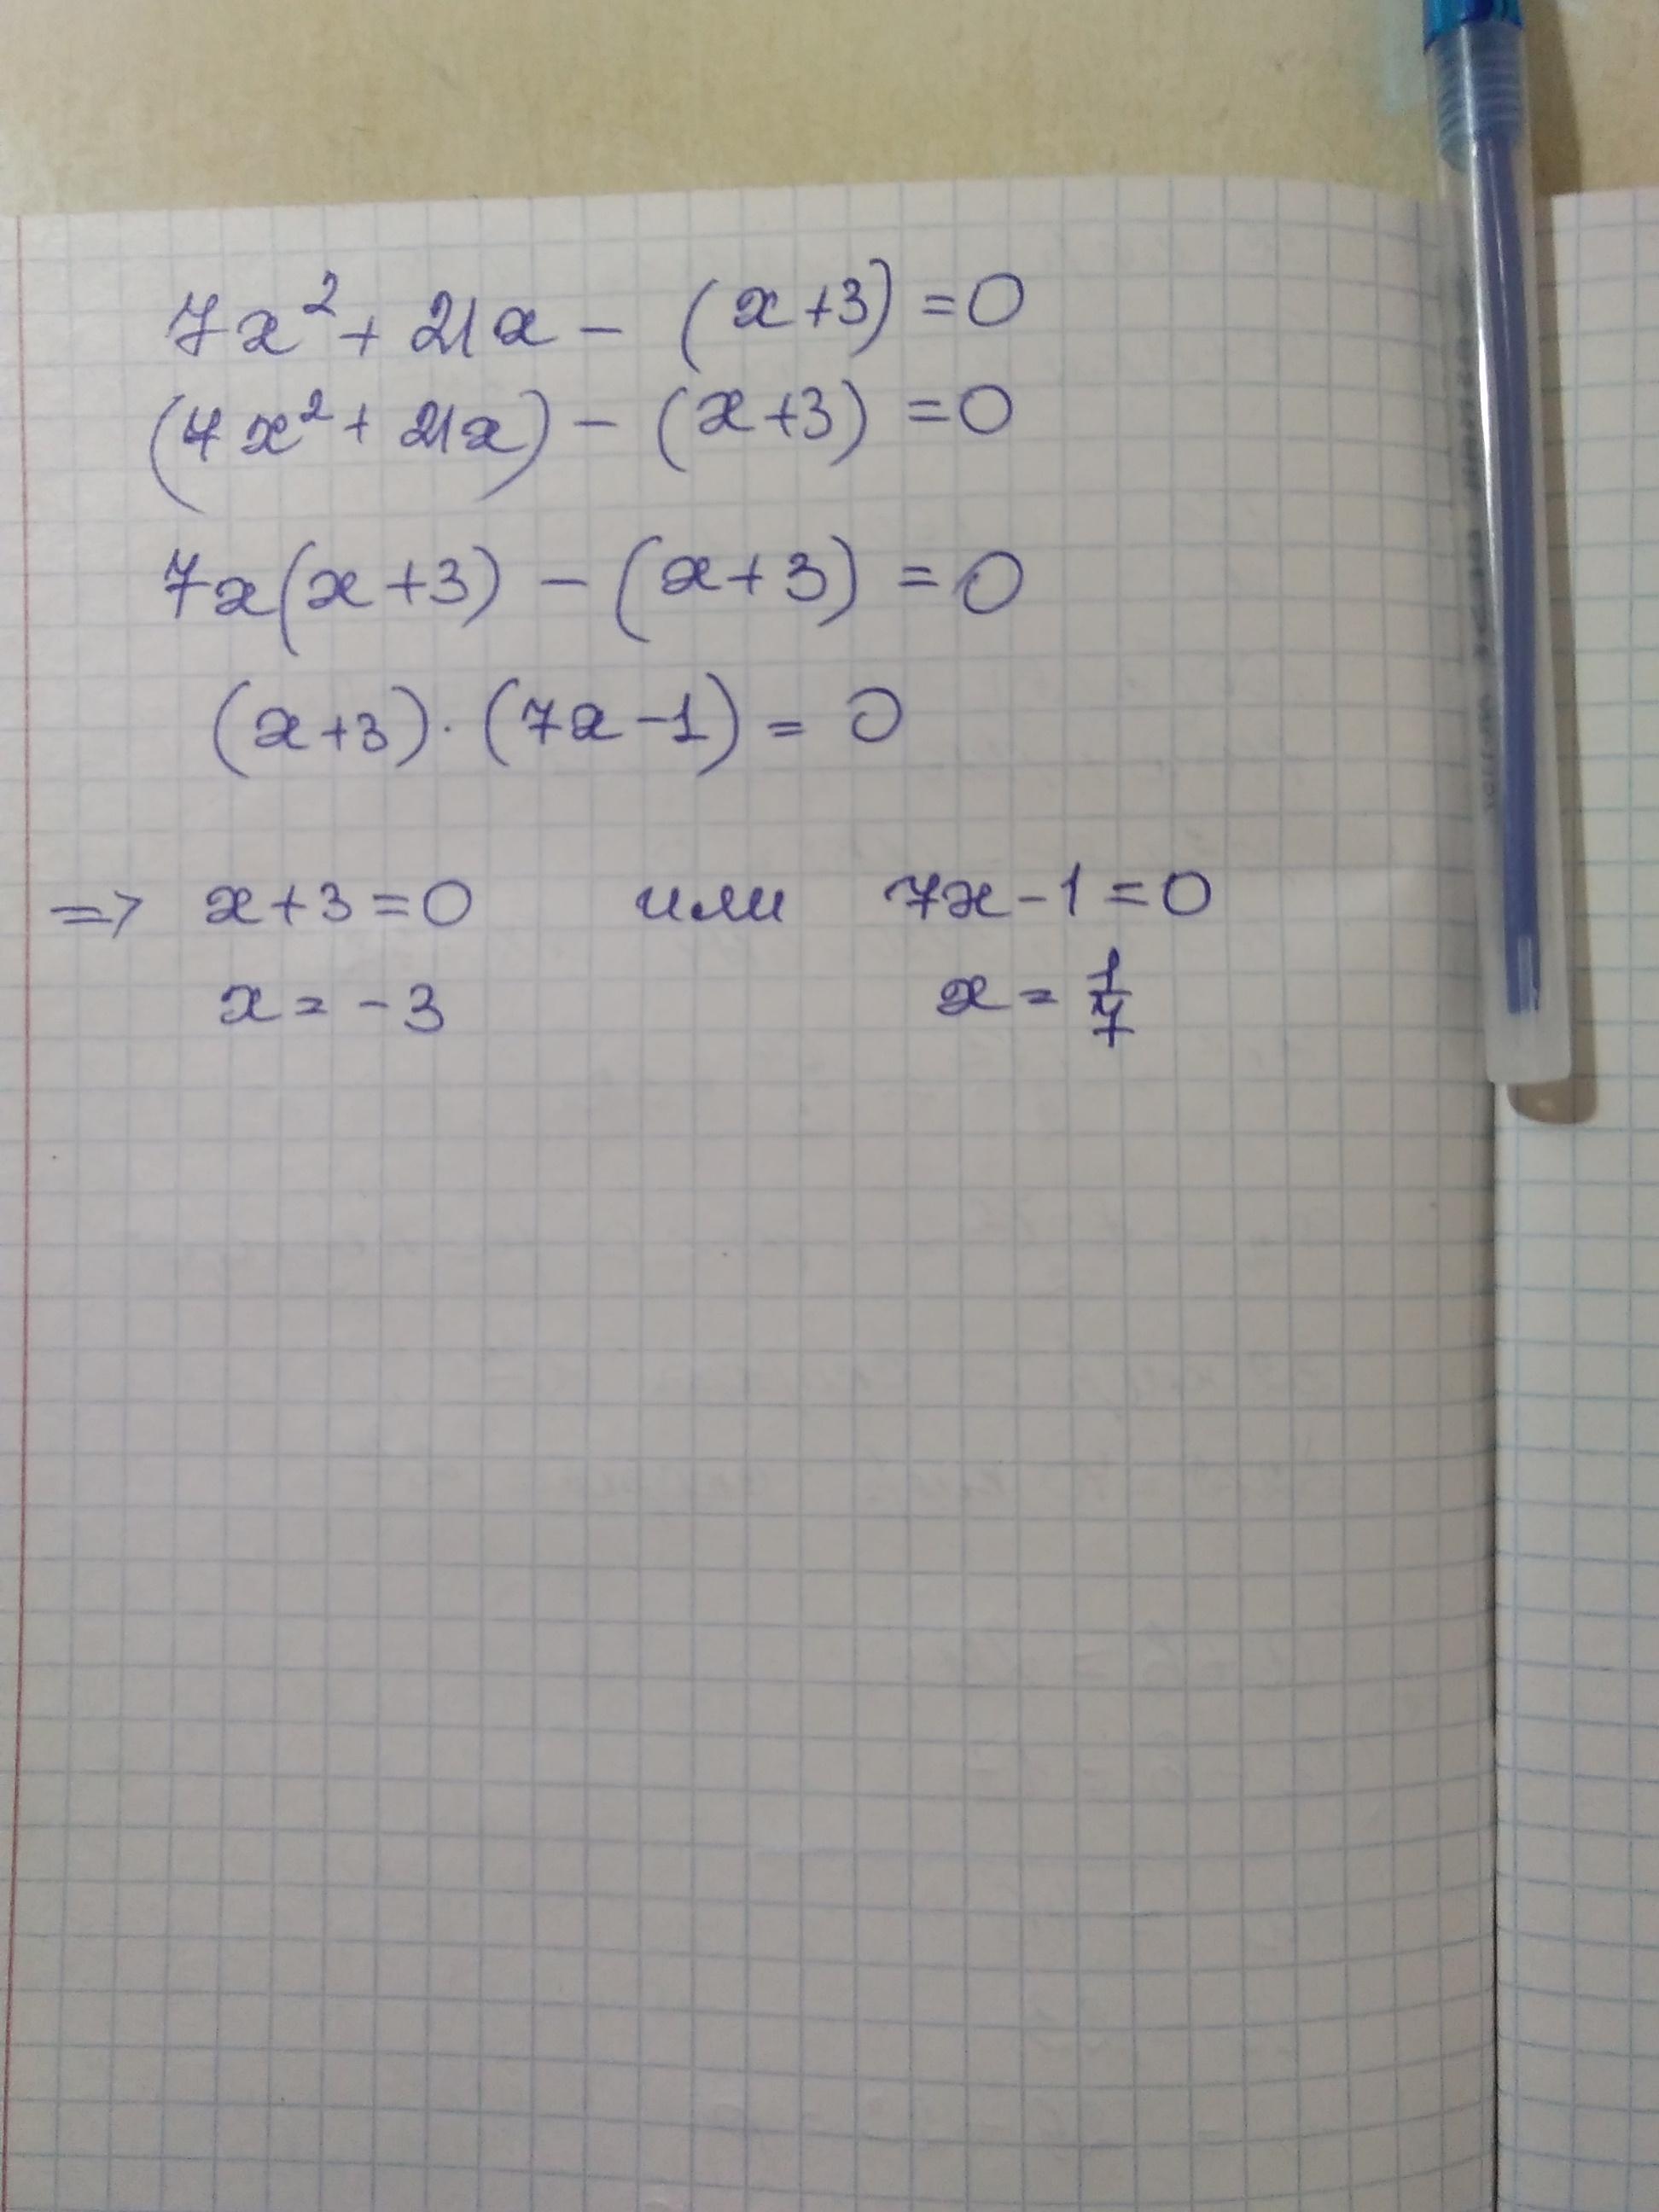 7x² + 21x - (x+3) = 0
(7x² + 21x) - (x+3) = 0
7x(x+3) - (x+3) = 0
(x+3) · (7x-1) = 0
=> x+3=0 или 7x-1=0
x = -3 x = 1/7